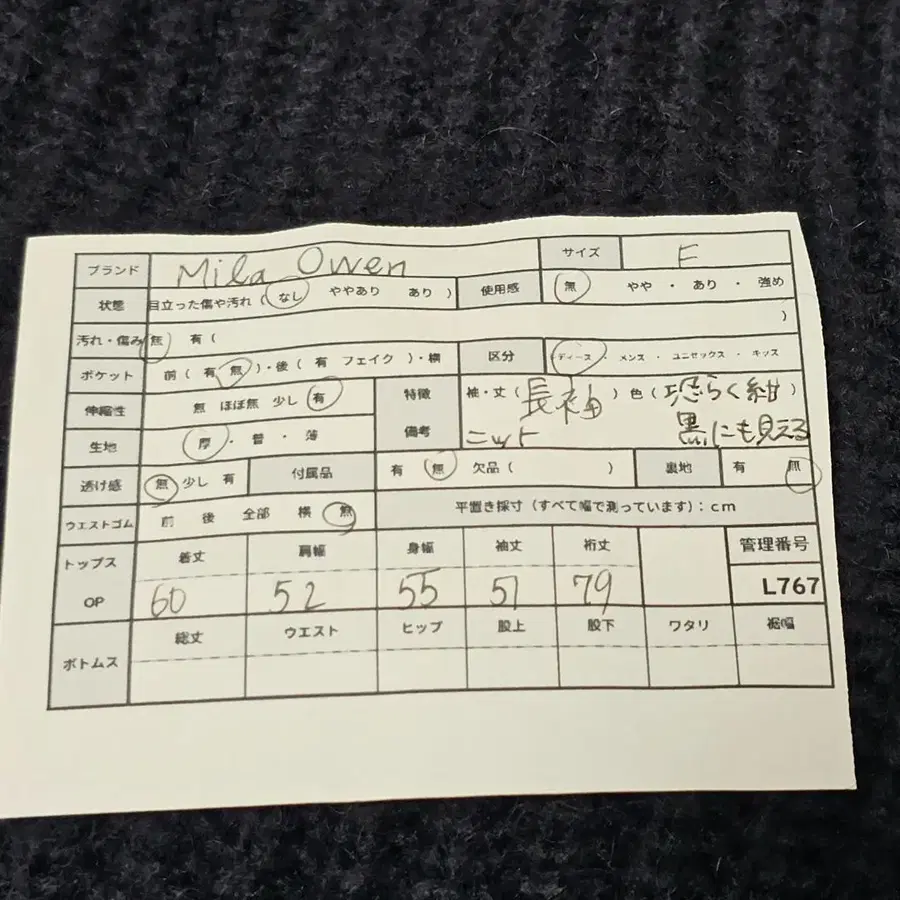 ブランド Mila Owen サイズ F
状態 目立った傷や汚れ ( なし ややあり あり ) 使用感 無 やや ・ あり ・ 強め
汚れ・傷み 無 有 ( )
ポケット 前 ( 有 無 )・後 ( 有 フェイク )・横 区分 ディース・ メンス ・ ユニセックス ・ キッズ
伸縮性 無 ほぼ無 少し 有 特徴 袖・丈 ( 長袖 ) 色 ( 恐らく紺 )
生地 厚 ・ 普 ・ 薄 備考 ニット 黒にも見える
透け感 無 少し 有 付属品 有 無 欠品 ( ) 裏地 有 無
ウエストゴム 前 後 全部 横 無 平置き採寸 (すべて幅で測っています) : cm
トップス 着丈 肩幅 身幅 袖丈 裄丈 管理番号
OP 60 52 55 51 79 L767
ボトムス 総丈 ウエスト ヒップ 股上 股下 ワタリ 裾幅